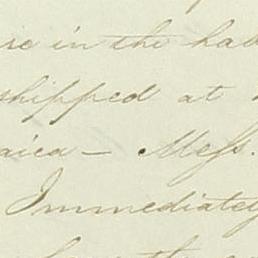 in the hab
shipped at
aica — Mess.
Immediately